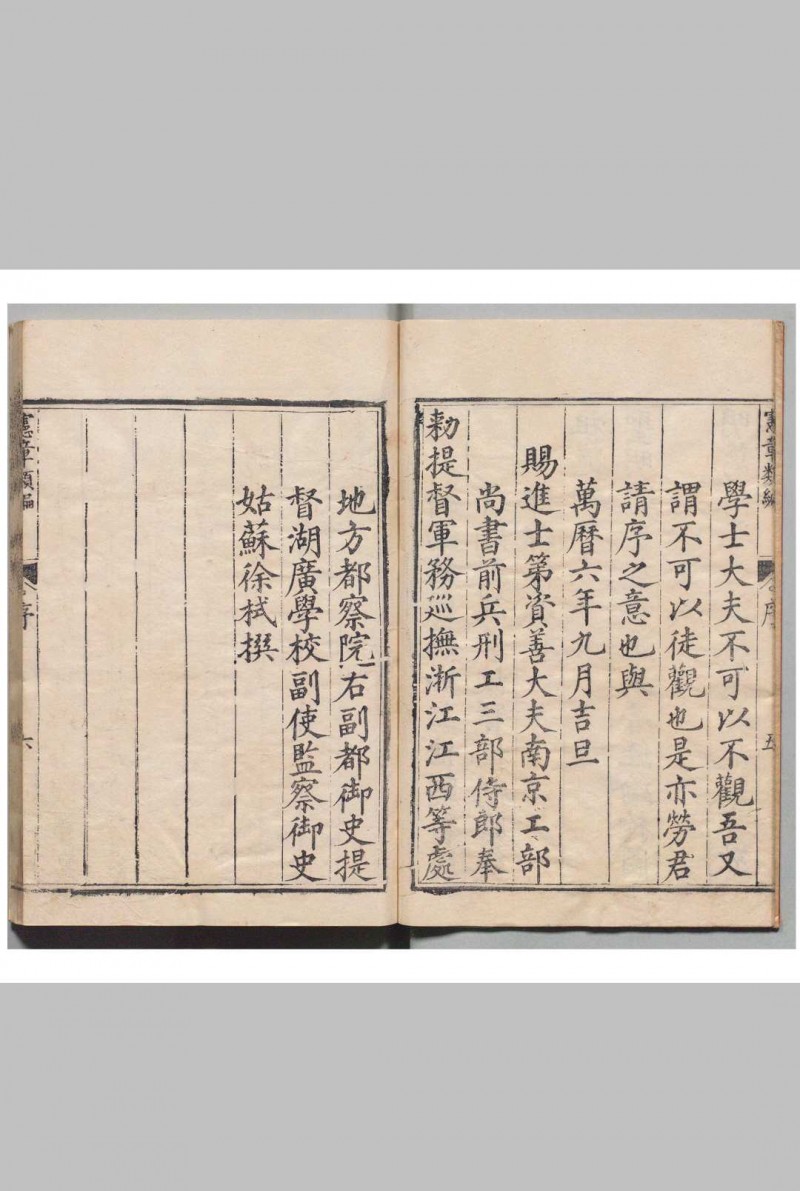 憲章類編
序
五
學士大夫不可以不觀吾又
謂不可以徒觀也是亦勞君
請序之意也與
萬曆六年九月吉旦
賜進士第資善大夫南京工部
尚書前兵刑工三部侍郎奉
勑提督軍務廵撫浙江江西等處
地方都察院右副都御史提
督湖廣學校副使監察御史
姑蘇徐栻撰
憲章類編
序
六